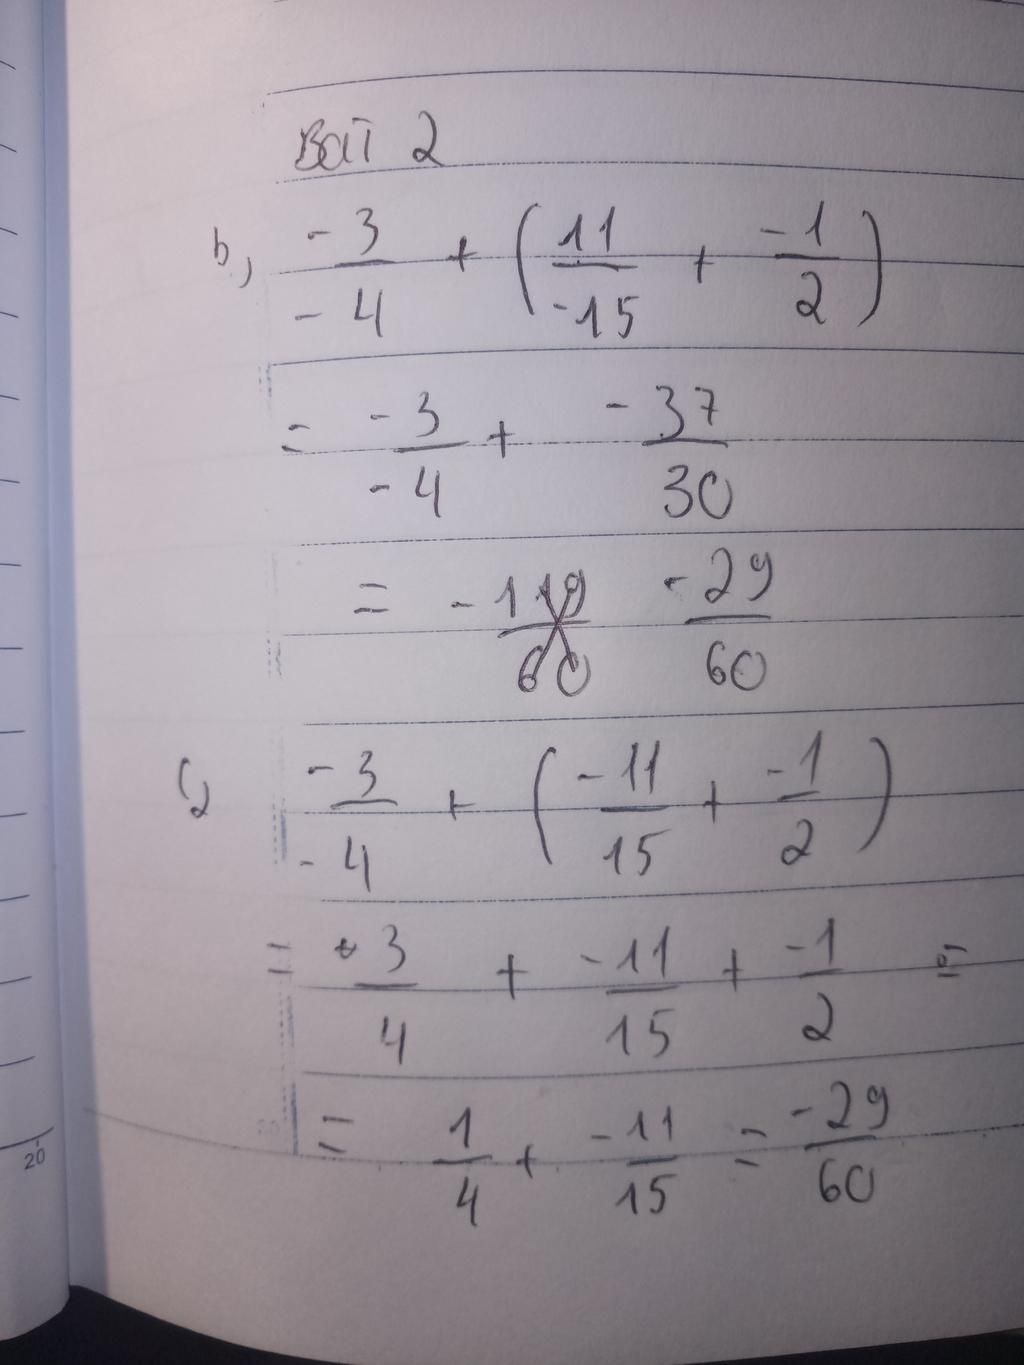 Bài 2
b, -3/-4 + (11/-15 + -1/2)
= -3/-4 + -37/30
= -29/60
c, -3/-4 + (-11/15 + -1/2)
= 3/4 + -11/15 + -1/2 =
= 1/4 + -11/15 = -29/60
20